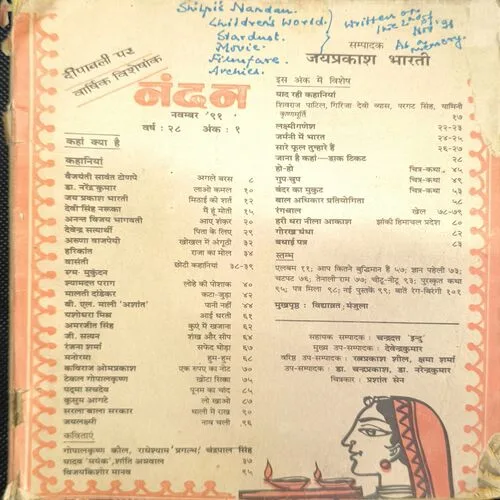 Shilpi's Nandan.
Children's World.
Stardust.
Movie.
Filmfare.
Archies.
Written on
the 2nd of
Nov, 91
As a
memory.
दीपावली पर
वार्षिक विशेषांक
सम्पादक
जयप्रकाश भारती
नंदन
नवम्बर '९१
वर्ष : २८ अंक : १
कहां क्या है
कहानियां
वैजयंती सावंत टोणपे अगले बरस ८
डा. नरेन्द्र कुमार लाओ कमल १०
जय प्रकाश भारती मिठाई की शर्त १२
देवी सिंह नरूका मैं हूं मोती १५
अनन्त विजय भागवती आए शंकर २०
देवेन्द्र सत्यार्थी पिता के लिए २९
अरूणा वाजपेयी खोखल में अंगूठी ३२
हरिकांत राजा का मोल ३४
वासंती छोटी कहानियां ३८-३९
एम. मुकुंदन
श्यामदत्त पराग लोहे की पोशाक ४०
मालती दांडेकर कटा-जुड़ा ४२
बी. एल. माली 'अशांत' पानी नहीं ४४
यशोधरा मिश्र आई धरती ६१
अमरजीत सिंह कुएं में खजाना ६२
जी. सत्यन शंख और सीप ६४
रंजना शर्मा सफेद घोड़ा ६७
मनोरमा हुम-हुम ६८
कविराज ओमप्रकाश एक रुपए का नोट ७०
टेकाल गोपालकृष्ण खोटा सिक्का ७५
पद्मा सचदेव पूनम का चांद ८५
कुसुम आगटे लो खाओ ८७
सरला बाला सरकार थाली में राख ९०
जयलक्ष्मी नाव चली ९६
कविताएं
गोपालकृष्ण कौल, राधेश्याम 'प्रगल्भ', चंद्रपाल सिंह
यादव 'मयंक', शांति अग्रवाल ३७
विजयकिशोर मानव ९५
इस अंक में विशेष
याद रही कहानियां
शिवराज पाटिल, गिरिजा देवी व्यास, परगट सिंह, यामिनी
कृष्णमूर्ति १७
लक्ष्मीगणेश २२-२३
जर्मनी में भारत २४-२५
सारे फूल तुम्हारे हैं २६-२७
जाना है कहां—डाक टिकट २८
हो-हो चित्र-कथा ४५
गुप-चुप चित्र-कथा ४९
बंदर का मुकुट चित्र-कथा ५३
बाल अधिकार प्रतियोगिता ५८
रंगशाला खेल ७८-७९
हरी धरा नीला आकाश झांकी हिमाचल प्रदेश ८०
गोरख धंधा ८२
बधाई पत्र ८३
स्तम्भ
एलबम ११; आप कितने बुद्धिमान हैं ५७; ज्ञान पहेली ७३;
चटपट ७६; तेनाली राम ७७; चीटू-नीटू ९३; पुरस्कृत कथा
९५; पत्र मिला ९८; नई पुस्तकें ९९; बातें रंग-बिरंगी १०१
मुखपृष्ठ : विद्याव्रत; मंजुला
सहायक सम्पादक : चन्द्रदत्त 'इन्दु'
मुख्य उप-सम्पादक : देवेन्द्रकुमार
वरिष्ठ उप-सम्पादक : रत्नप्रकाश शील, क्षमा शर्मा
उप सम्पादक : डा. चन्द्रप्रकाश, डा. नरेन्द्रकुमार
चित्रकार : प्रशांत सेन